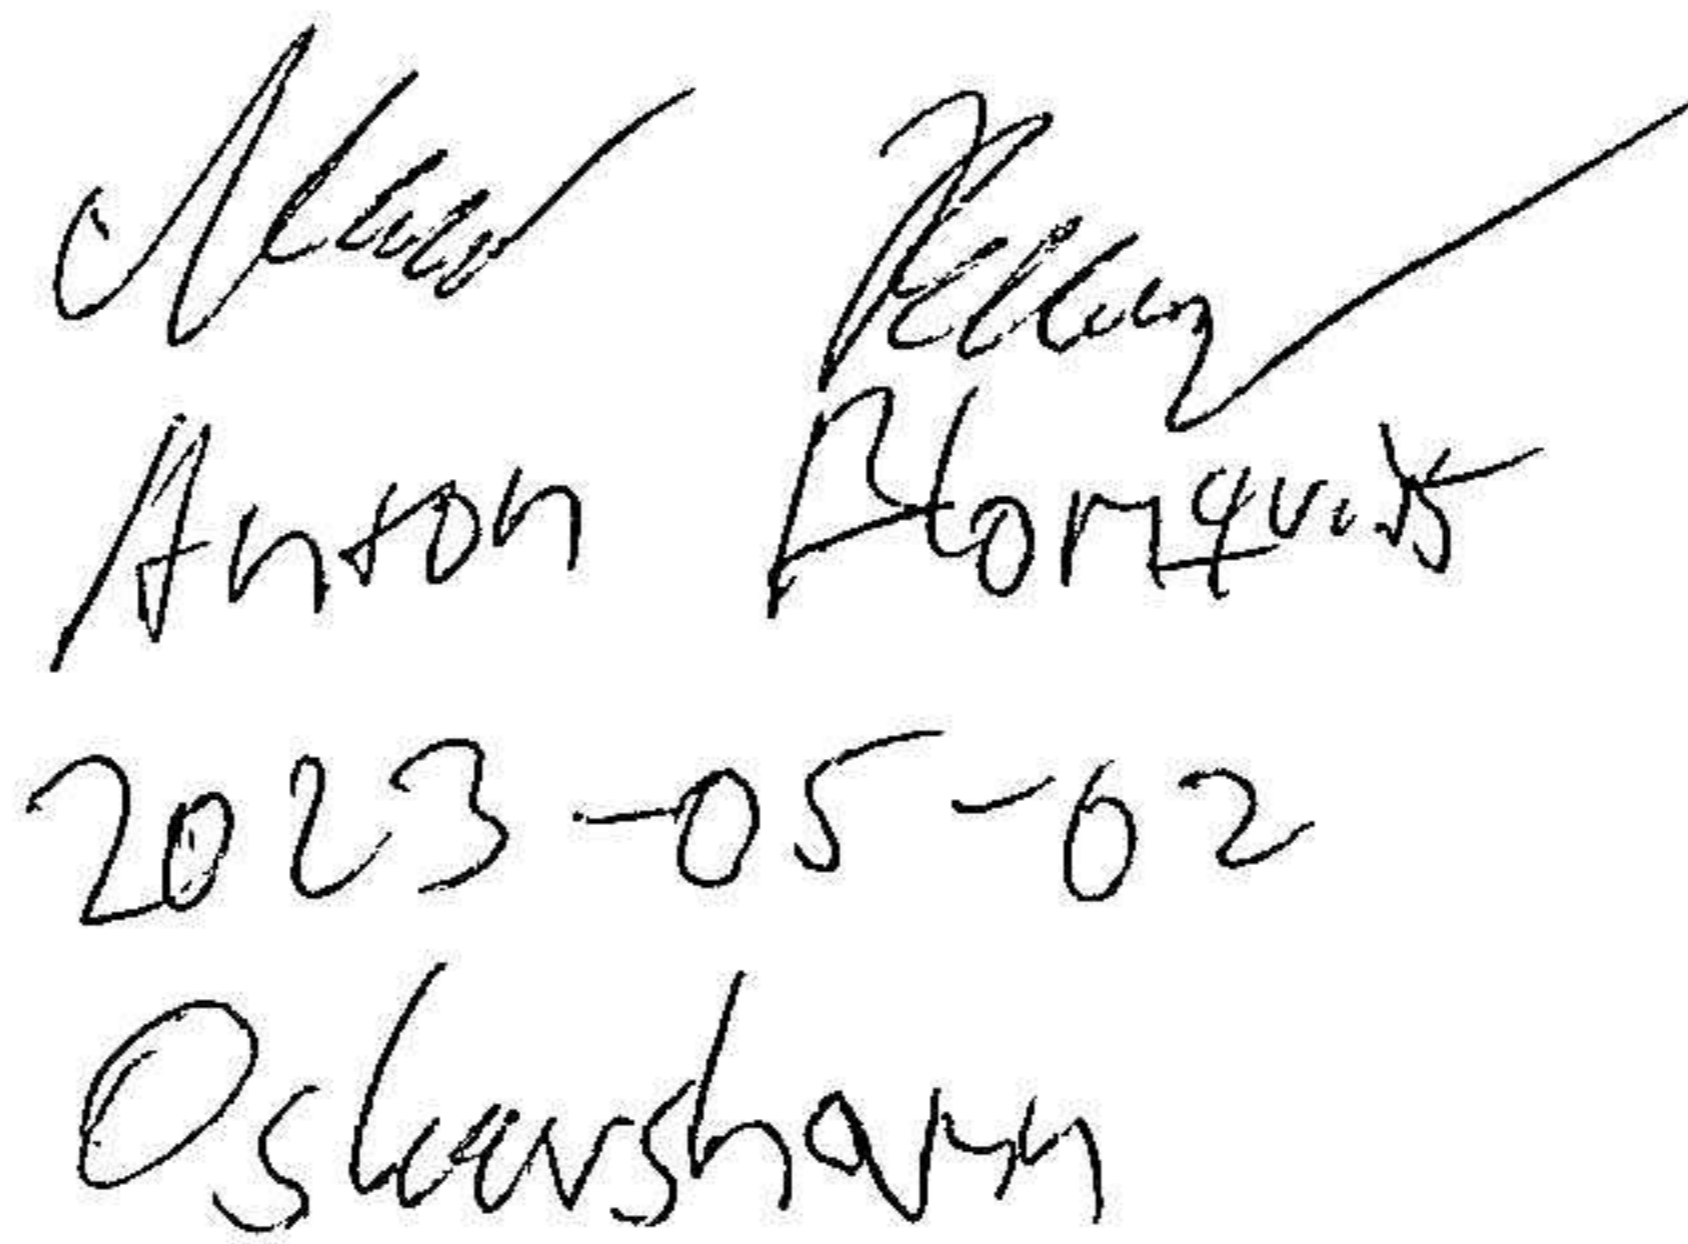 Anton Blomqvist
2023-05-02
Oskarshamn